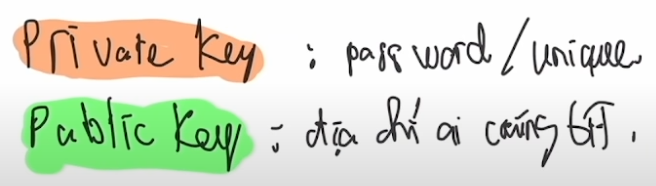 Private Key : password/unique
Public Key : địa chỉ ai cũng biết.